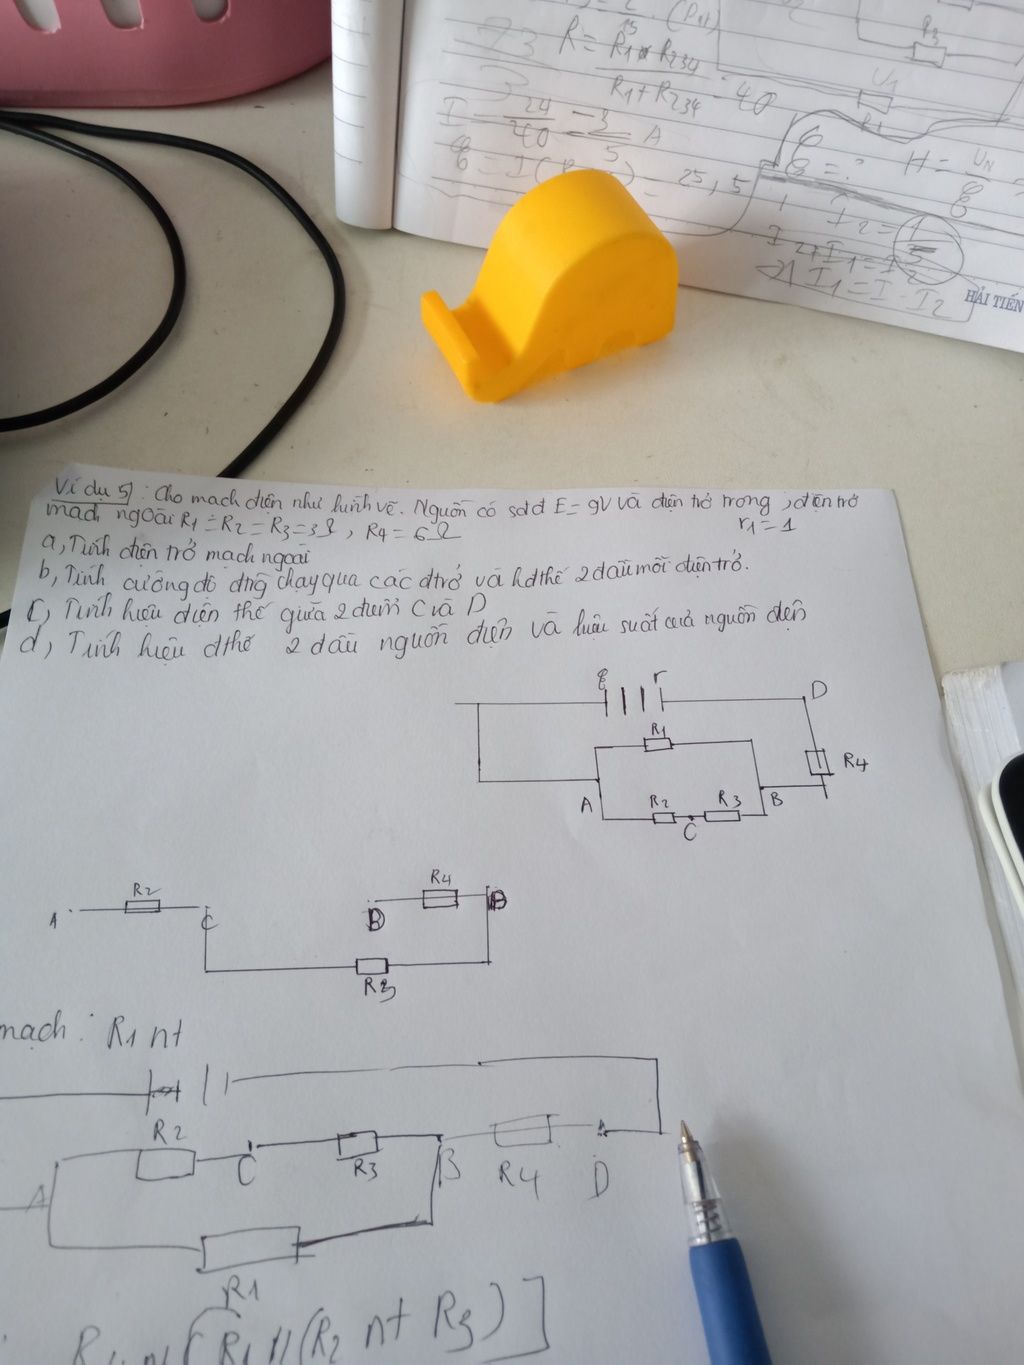 R = R1 R234
R1 + R234
= 40
I = 24
40 = 3
5 A
= 25,5
R3
U1
R1
E = ?
H = UN
E
I2 = 1
I2 + I1 = I
I1 = I - I2
HẢI TIẾN
Ví dụ 5) : Cho mạch điện như hình vẽ. Nguồn có sđđ E = 9V và điện trở trong ; điện trở
r1 = 1
mạch ngoài R1 = R2 = R3 = 3Ω, R4 = 6Ω
a, Tính điện trở mạch ngoài
b, Tính cường độ dđg chạy qua các đtrở và hđthế 2 đầu mỗi điện trở.
c, Tính hiệu điện thế giữa 2 điểm C và D
d, Tính hiệu đthế 2 đầu nguồn điện và hiệu suất của nguồn điện
E r
D
R1
R4
A
R2
R3
B
C
R2
R4
A
C
D
B
R3
mạch : R1 nt
R2
C
R3
B
R4
D
A
R1
(R1 // (R2 nt R3)]